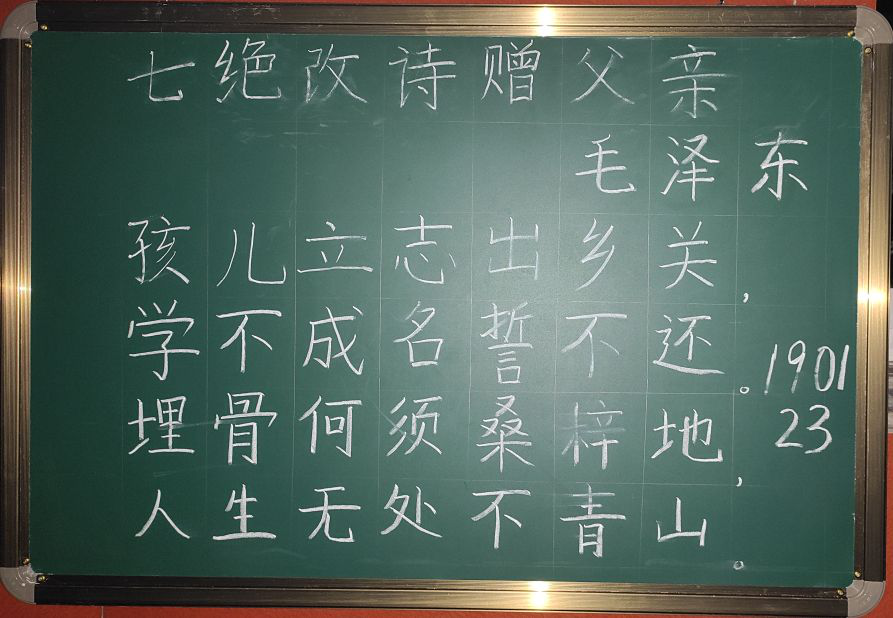 七绝改诗赠父亲
毛泽东
孩儿立志出乡关，
学不成名誓不还。
埋骨何须桑梓地，
人生无处不青山。
1901
23